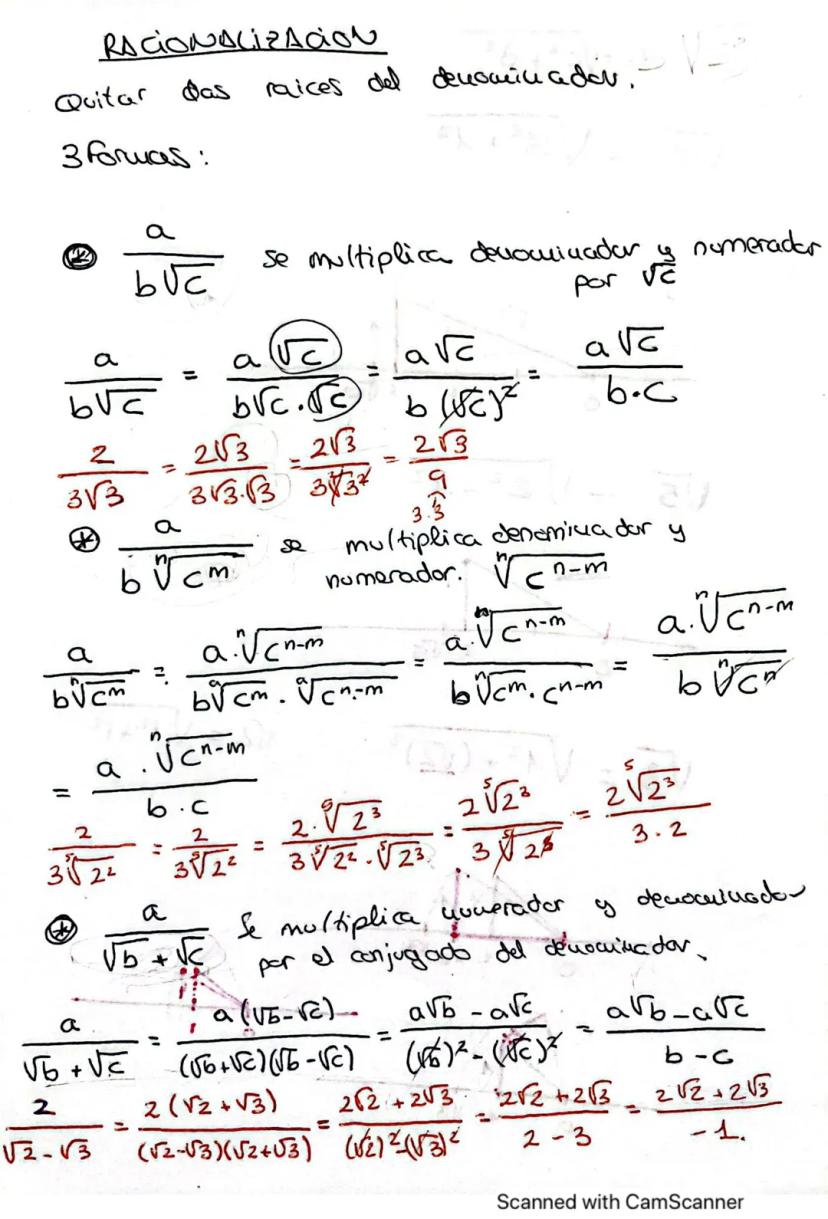 RACIONALIZACION
Quitar las raices del denominador.
3 formas:
⊛ a/(b√c) se multiplica denominador y numerador
por √c
a/(b√c) = a√c/(b√c·√c) = a√c/(b(√c)²) = a√c/(b·c)
2/(3√3) = 2√3/(3√3·√3) = 2√3/(3√3²) = 2√3/9
3·3
⊛ a/(b ⁿ√c^m) se multiplica denominador y
numerador. ⁿ√c^(n-m)
a/(b ⁿ√c^m) = a·ⁿ√c^(n-m)/(b ⁿ√c^m · ⁿ√c^(n-m)) = a·ⁿ√c^(n-m)/(b ⁿ√c^m·c^(n-m)) = a·ⁿ√c^(n-m)/(b ⁿ√c^n)
= a · ⁿ√c^(n-m)/(b·c)
2/(3 ⁵√2²) = 2/(3 ⁵√2²) = 2·⁵√2³/(3 ⁵√2² · ⁵√2³) = 2 ⁵√2³/(3 ⁵√2⁵) = 2 ⁵√2³/(3·2)
⊛ a/(√b + √c) Se multiplica numerador y denominador
por el conjugado del denominador.
a/(√b + √c) = a(√b-√c)/((√b+√c)(√b-√c)) = (a√b - a√c)/((√b)² - (√c)²) = (a√b - a√c)/(b-c)
2/(√2 - √3) = 2(√2 + √3)/((√2-√3)(√2+√3)) = (2√2 + 2√3)/((√2)²-(√3)²) = (2√2 + 2√3)/(2-3) = (2√2 + 2√3)/(-1).
Scanned with CamScanner